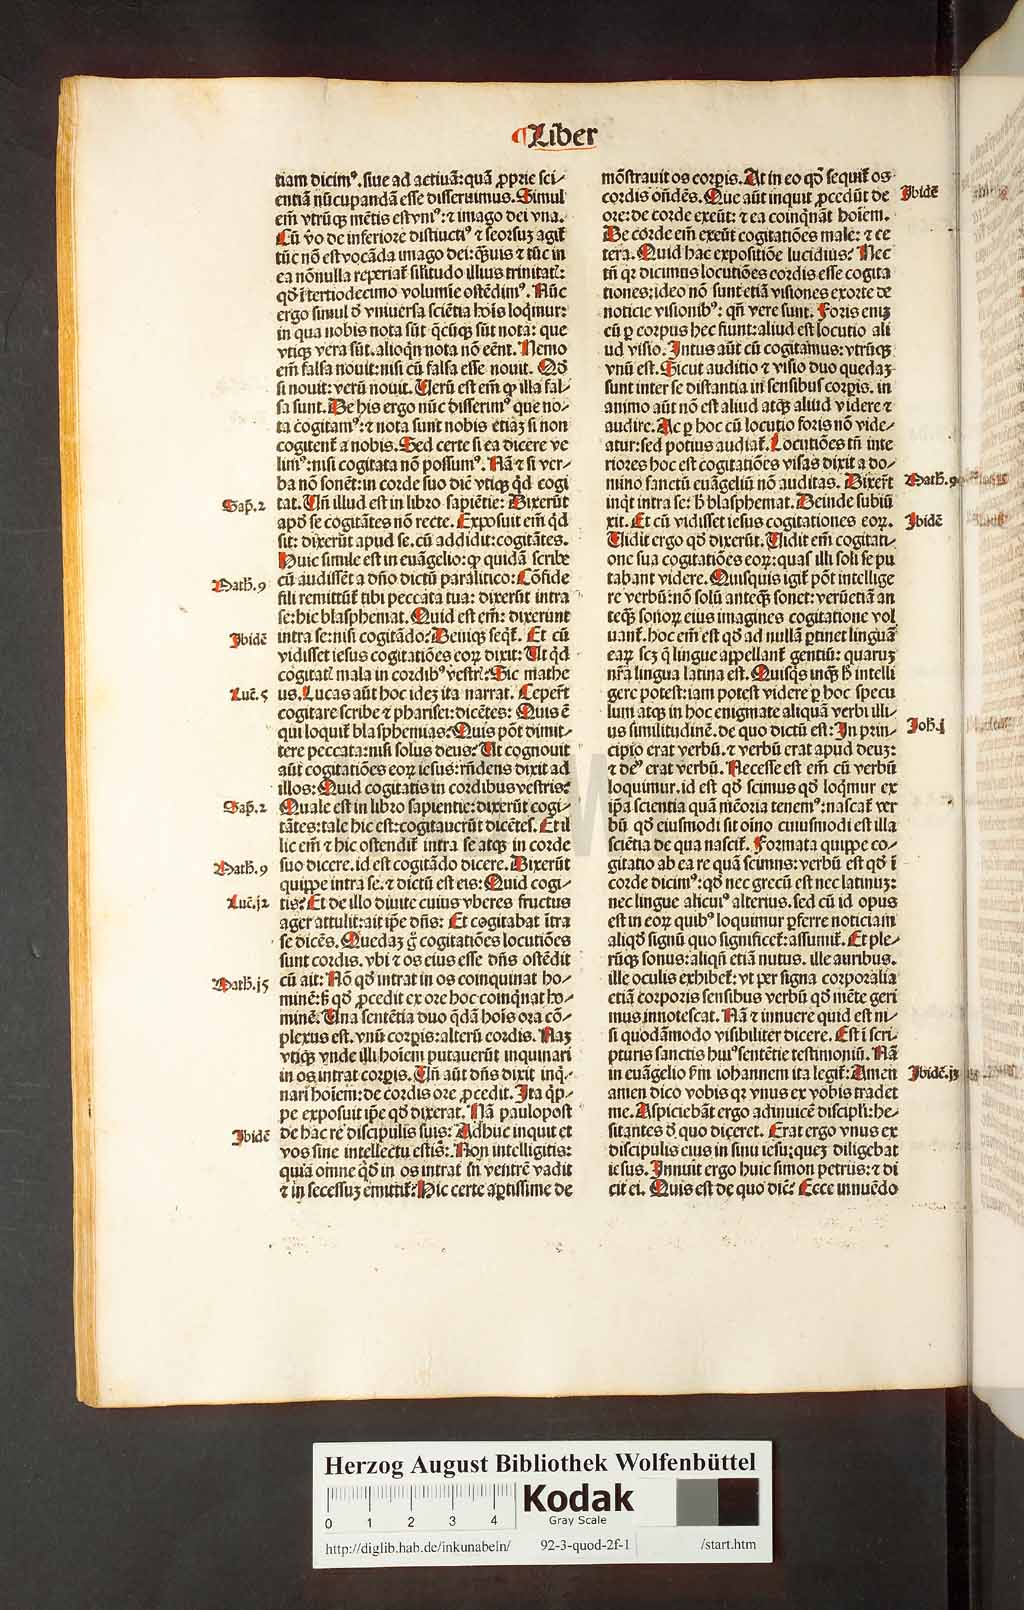 ¶Liber
tiam dicimꝰ. siue ad actiuā: quā ꝓprie sci⸗
entiā nūcupandā esse disseruimus. Simul
em̄ vtrūqꝫ mētis est vniꝰ: ⁊ imago dei vna.
Cū v̄o de inferiore distinctiꝰ ⁊ seorsuꝫ agiť
tūc nō est vocāda imago dei: q̄uis ⁊ tūc in
ea nōnulla reperiať silitudo illius trinitatꝭ:
qd̄ ī tertiodecimo volumīe ostēdimꝰ. Nūc
ergo simul d̄ vniuersa sciētia hoīs loq̄mur:
in qua nobis nota sūt q̄cūqꝫ sūt nota: que
vtiqꝫ vera sūt. alioqͥn nota nō eēnt. Nemo
em̄ falsa nouit: nisi cū falsa esse nouit. Qd̄
si nouit: verū nouit. Uerū est em̄ ꝙ illa fal⸗
sa sunt. De his ergo nūc disserimꝰ que no⸗
ta cogitamꝰ: ⁊ nota sunt nobis etiaꝫ si non
cogitenť a nobis. Sed certe si ea dicere ve
limꝰ: nisi cogitata nō possumꝰ. Nā ⁊ si ver⸗
ba nō sonēt: in corde suo dīe vtiqꝫ qd̄ cogi
Sap̄. 2 tat. Un̄ illud est in libro sapiētie: Dixerūt
apd̄ se cogitātes nō recte. Exposuit em̄ qd̄
sit: dixerūt apud se. cū addidit: cogitātes.
Huic simile est in euāgelio: ꝙ quidā scribe
Math. 9 cū audissēt a dn̄o dictū paralitico: Cōfide
fili remittunť tibi peccata tua: dixerūt intra
se: hic blasphemat. Quid est em̄: dixerunt
Ibidē intra se: nisi cogitādo? Deniqꝫ seqť. Et cū
vidisset iesus cogitatiōes eoꝝ dixit: Ut qd̄
cogitatꝭ mala in cordibꝰ vestrꝭ? Sic mathe
Luc̄. 5 us. Lucas aūt hoc ideꝫ ita narrat. Ceperūt
cogitare scribe ⁊ pharisei: dicētes: Quis ē
qui loquiť blasphemias? Quis pōt dimit⸗
tere peccata: nisi solus deus? Ut cognouit
aūt cogitatiōes eoꝝ iesus: rn̄dens dixit ad
illos: Quid cogitatis in cordibus vestris?
Sap̄. 2 Quale est in libro sapientie: dixerūt cogi⸗
tātes: tale hic est: cogitauerūt dicētes. Et il
lic em̄ ⁊ hic ostendiť intra se atqꝫ in corde
Math. 9 suo dicere. id est cogitādo dicere. Dixerūt
quippe intra se. ⁊ dictū est eis: Quid cogi⸗
Luc̄. 12 tis? Et de illo diuite cuius vberes fructus
ager attulit: ait ip̄e dn̄s: Et cogitabat ītra
se dicēs. Quedaꝫ g̊ cogitatiōes locutiōes
sunt cordis. vbi ⁊ os eius esse dn̄s ostēdit
Math. 15 cū ait: Nō qd̄ intrat in os coinquinat ho⸗
minē: ß qd̄ ꝓcedit ex ore hoc coinqͥnat ho⸗
minē. Una sentētia duo q̄dā hoīs ora cō⸗
plexus est. vnū corꝑis: alterū cordis. Naꝫ
vtiqꝫ vnde illi hoīem putauerūt inquinari
in os intrat corꝑis. Un̄ aūt dn̄s dixit inqͥ⸗
nari hoīem: de cordis ore ꝓcedit. Ita qͥp⸗
pe exposuit ip̄e qd̄ dixerat. Nā paulopost
Ibidē de hac re discipulis suis: Adhuc inquit et
vos sine intellectu estis? Non intelligitis:
quia omne qd̄ in os intrat in ventrē vadit
⁊ in secessuꝫ emittiť? Hic certe aꝑtissime de
mōstrauit os corꝑis. At in eo qd̄ sequiť os
cordis on̄dēs. Que aūt inquit ꝓcedūt de Ibidē
ore: de corde exeūt: ⁊ ea coinqͥnāt hoīem.
De corde em̄ exeūt cogitatiōes male: ⁊ ce
tera. Quid hac expositiōe lucidius? Nec
tn̄ qꝛ dicimus locutiōes cordis esse cogita
tiones: ideo nō sunt etiā visiones exorte de
noticie visionibꝰ: qn̄ vere sunt. Foris eniꝫ
cū ꝑ corpus hec fiunt: aliud est locutio ali
ud visio. Intus aūt cū cogitamus: vtrūqꝫ
vnū est. Sicut auditio ⁊ visio duo quedaꝫ
sunt inter se distantia in sensibus corꝑis. in
animo aūt nō est aliud atqꝫ aliud videre ⁊
audire. Ac ꝑ hoc cū locutio foris nō vide⸗
atur: sed potius audiať. Locutiōes tn̄ inte
riores hoc est cogitatiōes visas dixit a do⸗
mino sanctū euāgeliū nō auditas. Dixerūt Math. 9
inqͥt intra se: hͥ blasphemat. Deinde subiū
xit. Et cū vidisset iesus cogitationes eoꝝ. Ibidē
Uidit ergo qd̄ dixerūt. Uidit em̄ cogitati⸗
one sua cogitatiōes eoꝝ: quas illi soli se pu
tabant videre. Quisquis igiť pōt intellige
re verbū: nō solū anteq̄ꝫ sonet: verūetiā an
teq̄ꝫ sonoꝝ eius imagines cogitatione vol
uanť. hoc em̄ est qd̄ ad nullā ꝑtinet linguā
eaꝝ scꝫ q̄ lingue appellanť gentiū: quaruꝫ
nr̄a lingua latina est. Quisqͥs inqͣꝫ hͦ intelli
gere potest: iam potest videre ꝑ hoc specu
lum atqꝫ in hoc enigmate aliquā verbi illi⸗
us similitudinē. de quo dictū est: In prin⸗ Joh̄. 1
cipio erat verbū. ⁊ verbū erat apud deuꝫ:
⁊ deꝰ erat verbū. Necesse est em̄ cū verbū
loquimur. id est qd̄ scimus qd̄ loqͥmur ex
ip̄a scientia quā mēoria tenemꝰ: nascať ver
bū qd̄ eiusmodi sit oīno cuiusmodi est illa
sciētia de qua nasciť. Formata quippe co⸗
gitatio ab ea re quā scimus: verbū est qd̄ ī
corde dicimꝰ: qd̄ nec grecū est nec latinuꝫ:
nec lingue alicuiꝰ alterius. sed cū id opus
est in eoꝝ quibꝰ loquimur ꝑferre noticiam
aliqd̄ signū quo significeť: assumiť. Et ple⸗
rūqꝫ sonus: aliqn̄ etiā nutus. ille auribus.
ille oculis exhibeť: vt per signa corporalia
etiā corporis sensibus verbū qd̄ mēte geri
mus innotescat. Nā ⁊ innuere quid est ni⸗
si quodāmodo visibiliter dicere. Est ī scri⸗
pturis sanctis huiꝰ sentētie testimoniū. Nā
in euāgelio ẜm iohannem ita legiť: Amen Ibidē. 13
amen dico vobis qꝛ vnus ex vobis tradet
me. Aspiciebāt ergo adinuicē discipli: he⸗
sitantes d̄ quo diceret. Erat ergo vnus ex
discipulis eius in sinu iesu: queꝫ diligebat
iesus. Innuit ergo huic simon petrus: ⁊ di
cit ei. Quis est de quo dicē? Ecce innuēdo
Herzog August Bibliothek Wolfenbüttel
0 1 2 3 4 Kodak
Gray Scale
http://diglib.hab.de/inkunabeln/ 92-3-quod-2f-1 /start.htm